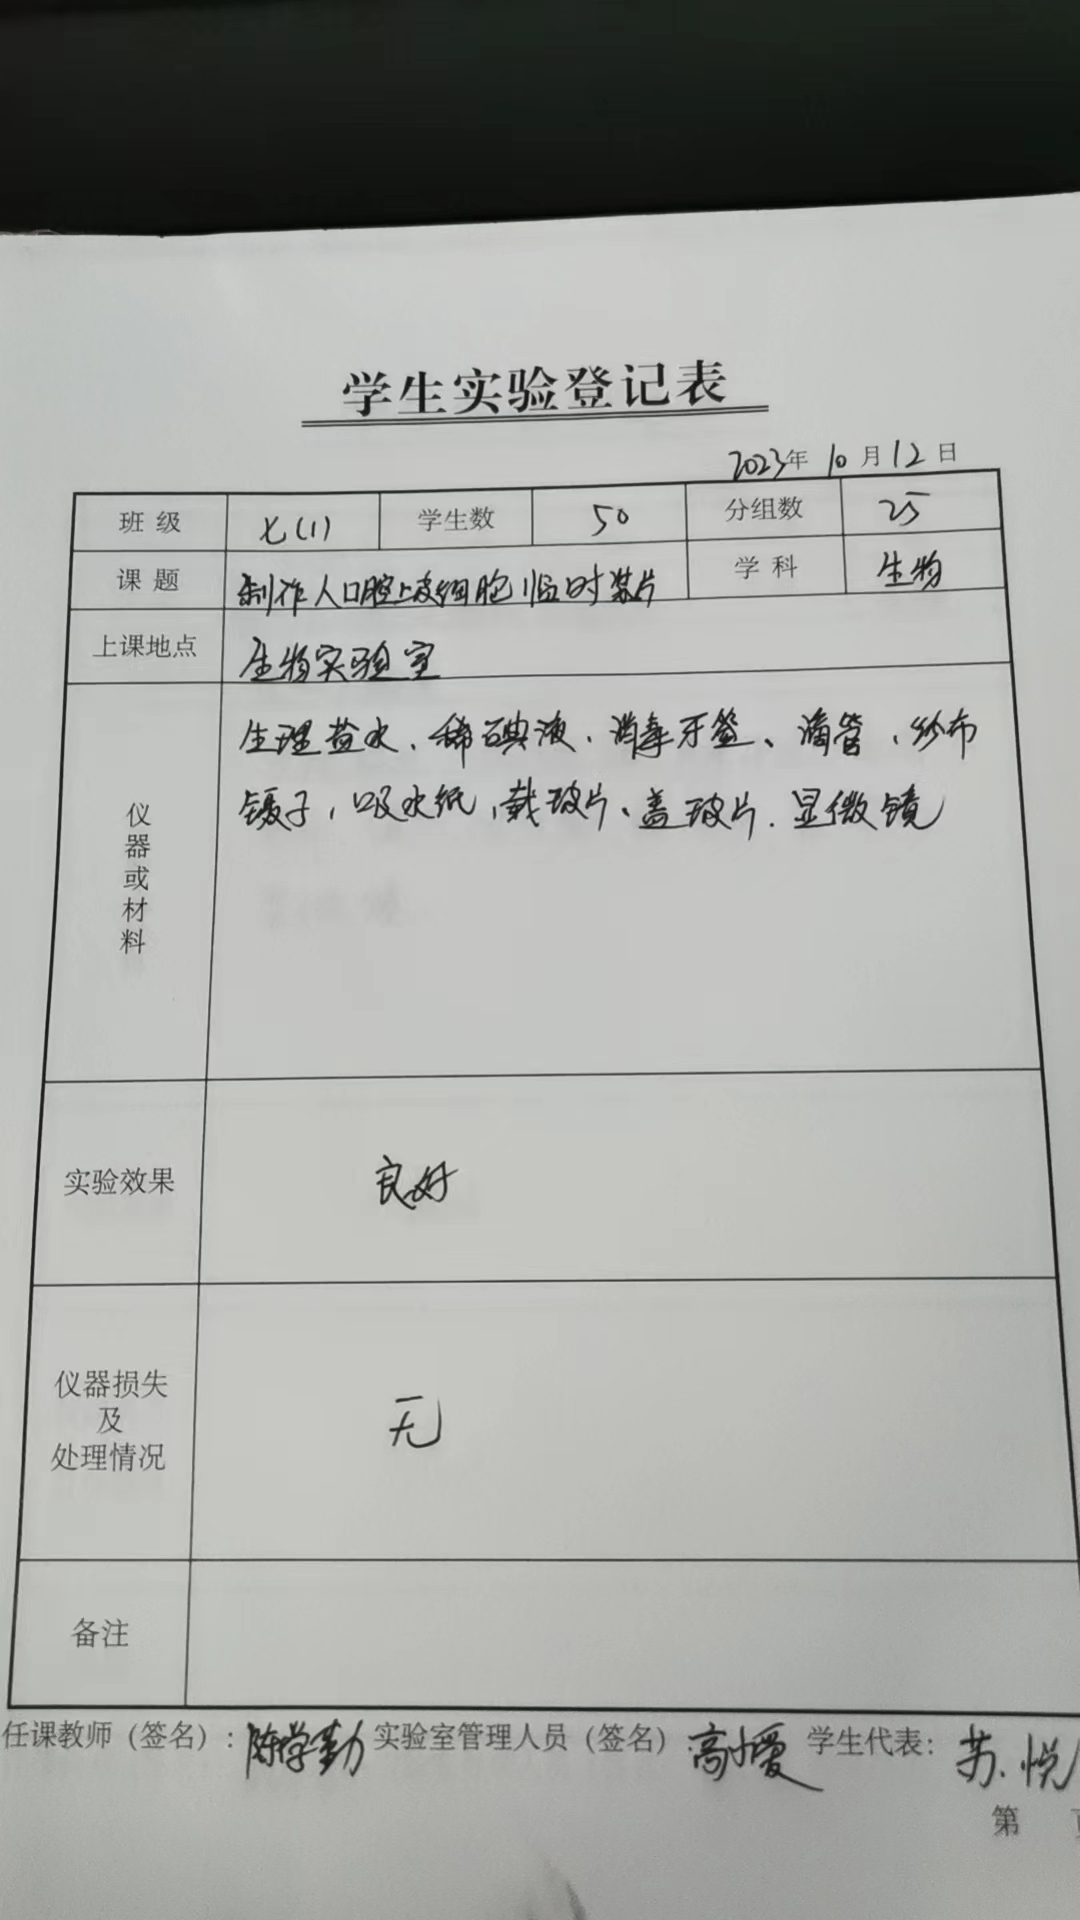 学生实验登记表
2023年 10月12日
班级 七(1) 学生数 50 分组数 25
课题 制作人口腔上皮细胞临时装片 学科 生物
上课地点 生物实验室
仪器或材料
生理盐水、稀碘液、消毒牙签、滴管、纱布
镊子、吸水纸、载玻片、盖玻片.显微镜
实验效果 良好
仪器损失
及
处理情况
无
备注
任课教师（签名）：陈学勤 实验室管理人员（签名）：高小爱 学生代表：苏悦
第